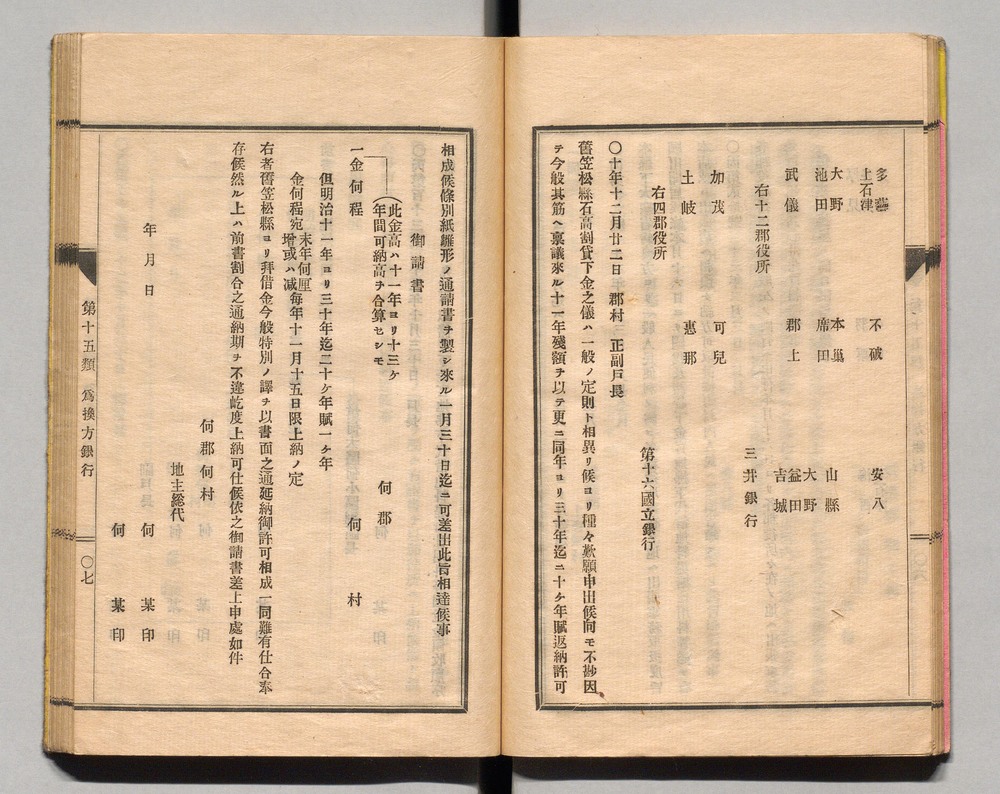 多藝　不破　安八
上石津
大野　本巣　山縣
池田　席田　大野
武儀　郡上　益田
吉城
右十二郡役所
三井銀行
加茂　可兒
土岐　惠那
右四郡役所
第十六國立銀行
〇十年十二月廿二日　郡村三正副戸長
舊笠松縣石高割貸下金之儀ハ一般ノ定則ト相異リ候ヨリ種々歎願申出候向モ不尠因
テ今般其筋ヘ稟議來ル十一年殘額ヲ以テ更ニ同年ヨリ三十年迄二十ケ年賦返納許可
相成候條別紙雛形ノ通請書ヲ製シ來ル一月三十日迄ニ可差出此旨相達候事
御請書
何郡
此金高ハ十一年ヨリ十三ケ
年間可納高ヲ合算セシモ
一金何程
何村
但明治十一年ヨリ三十年迄二十ケ年賦一ケ年
金何程宛末年何厘増或ハ减毎年十一月十五日限上納ノ定
右者舊笠松縣ヨリ拜借金今般特別ノ譯ヲ以書面之通延納御許可相成一同難有仕合奉
存候然ル上ハ前書割合之通納期ヲ不違屹度上納可仕候依之御請書差上申處如件
何郡何村
地主總代
年月日　何　某印
何　某印
第十五類　爲換方銀行　〇七